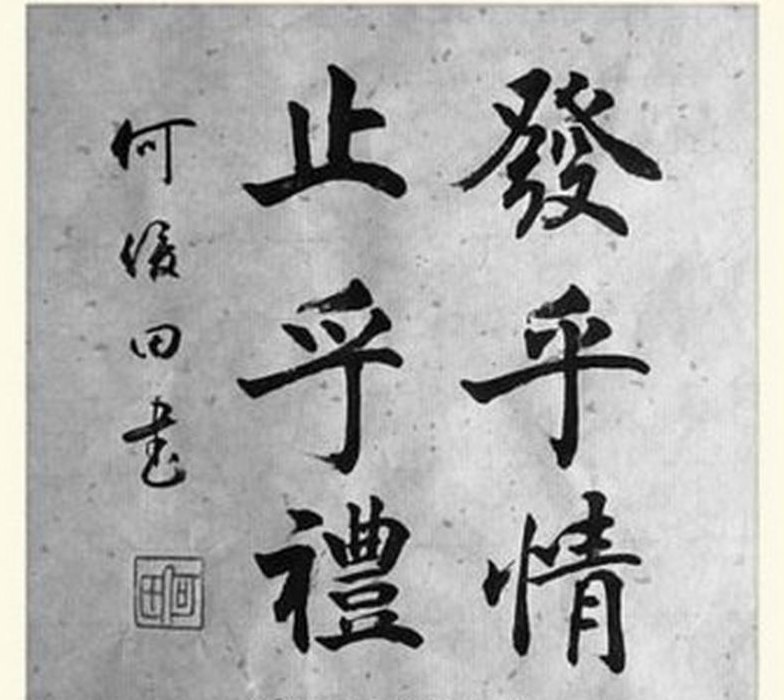 發乎情
止乎禮
何𢔶田書